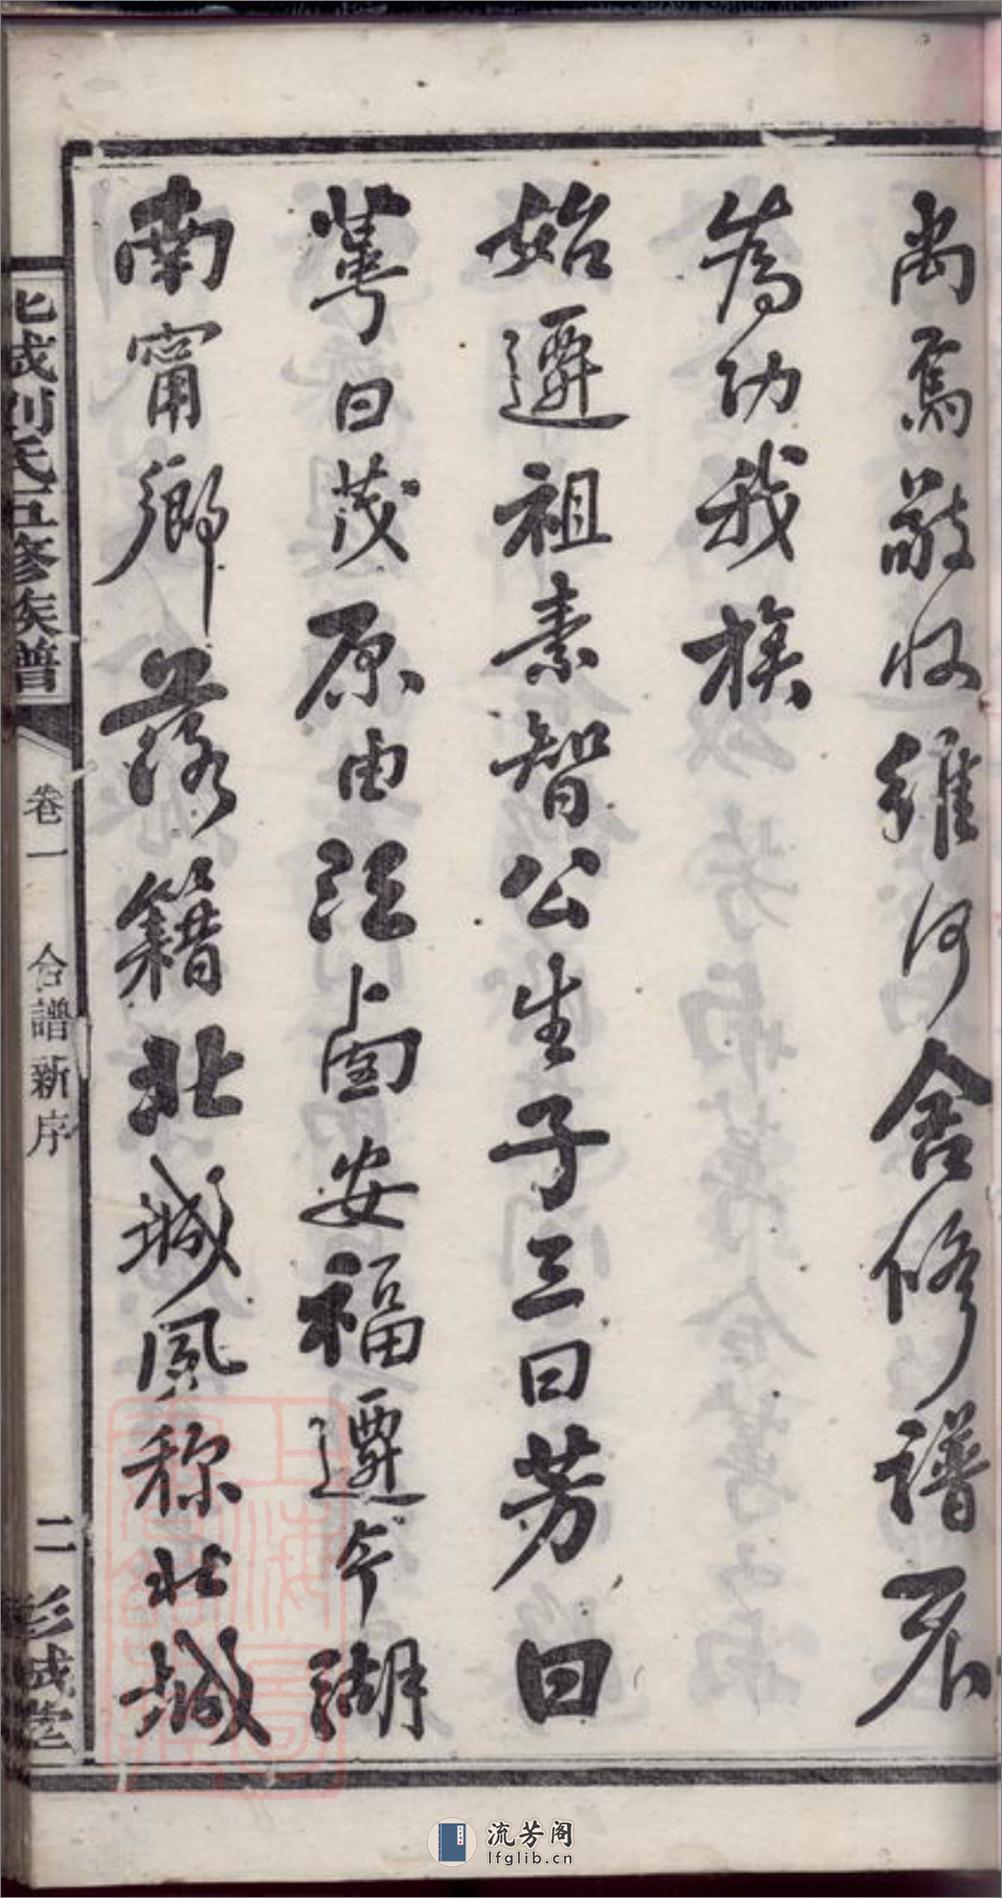 尚焉敬收維何舍修譜不
為功我族
始遷祖素智公生子三曰芳曰
蕚曰茂原由江卥安福遷今湖
南甯鄉落籍北城夙稱北城
北城劉氏五修族譜
卷一
合譜新序
二
彭城堂
流芳阁
lfglib.cn